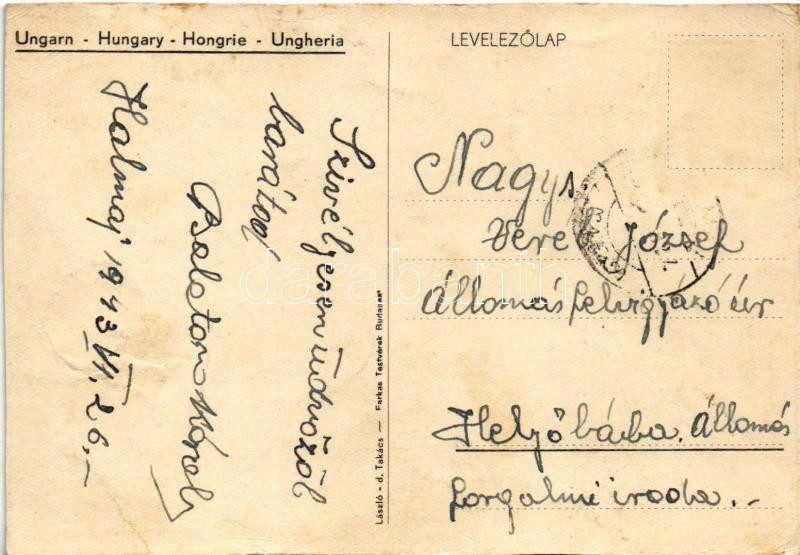 Ungarn - Hungary - Hongrie - Ungheria
LEVELEZŐLAP
Halmaj 1943 VI. 26.-
Szivélyesen üdvözöl
barátod
Balaton
László - d. Takács — Farkas Testvérek Budapest
Nagys
Vere József
Állomásfelvigyázó úr
Hejőbába. Állomás
forgalmi iroda.-
darabanth